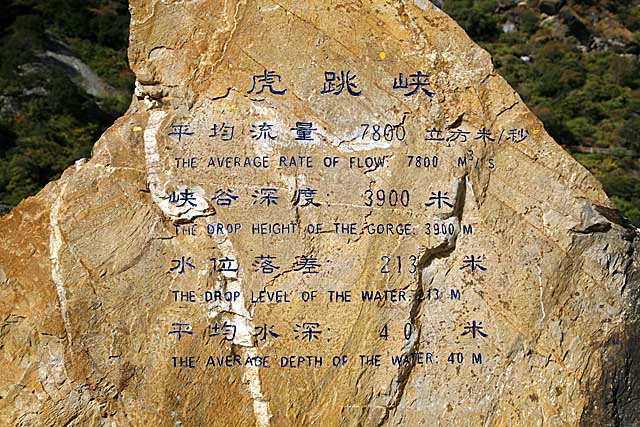 虎跳峡
平均流量: 7800 立方米/秒
THE AVERAGE RATE OF FLOW: 7800 M³/S
峡谷深度: 3900 米
THE DROP HEIGHT OF THE GORGE: 3900 M
水位落差: 213 米
THE DROP LEVEL OF THE WATER: 213 M
平均水深: 40 米
THE AVERAGE DEPTH OF THE WATER: 40 M